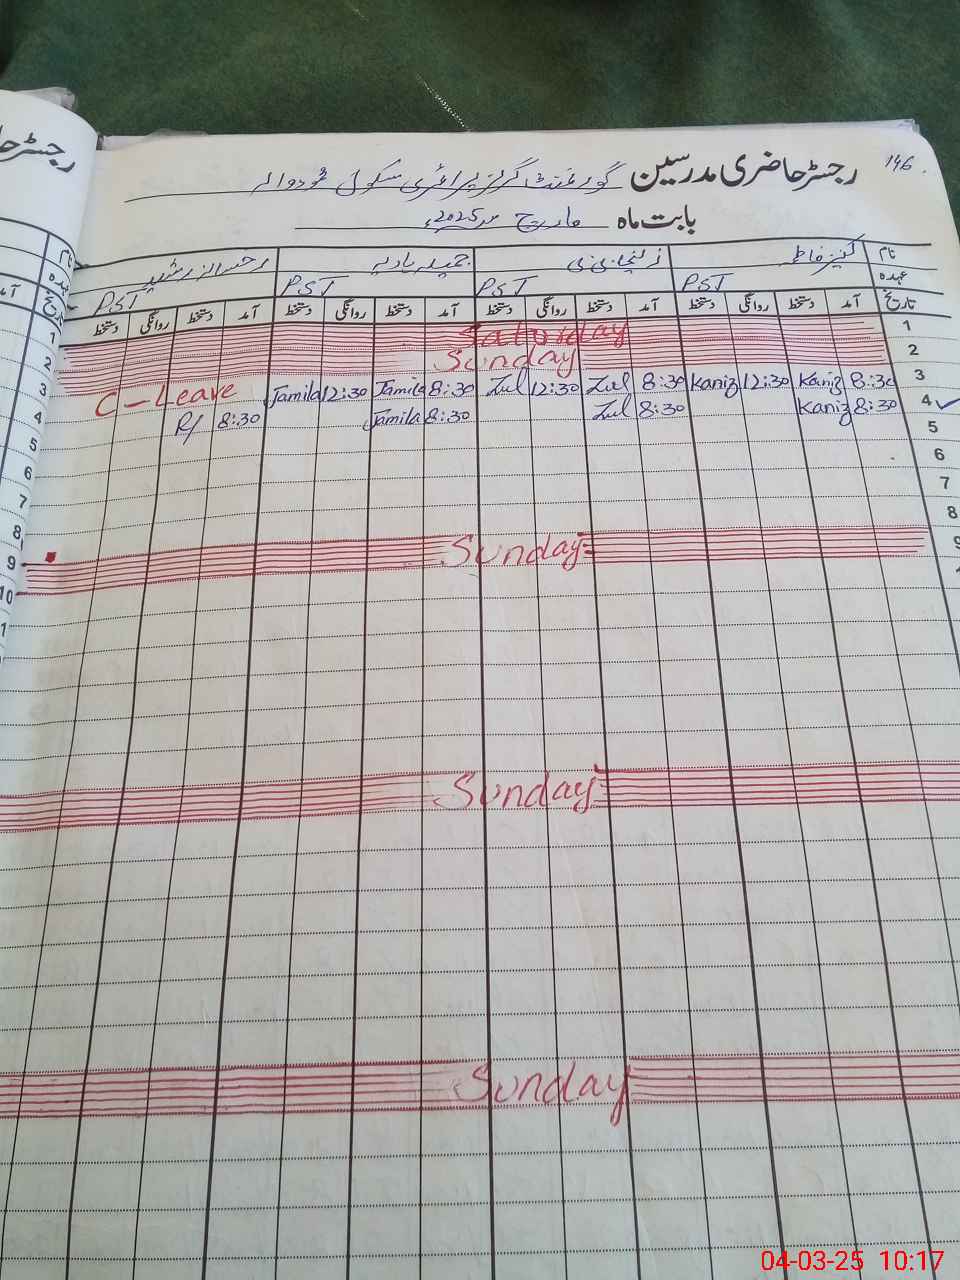 146
رجسٹر حاضری مدرسین گورنمنٹ گرلز پرائمری سکول
بابت ماہ مارچ 2025ء
نام کنیز فاطمہ زلیخا بی بی جمیلہ
عہدہ PST PST PST PST
تاریخ آمد دستخط روانگی دستخط آمد دستخط روانگی دستخط آمد دستخط روانگی دستخط آمد دستخط روانگی دستخط
1 Saturday 1
2 Sunday 2
C-Leave Jamila 12:30 Jamila 8:30 Zul 12:30 Zul 8:30 Kaniz 12:30 Kaniz 8:30 3
R/ 8:30 Jamila 8:30 Zul 8:30 Kaniz 8:30 4
5
6
7
8
Sunday 9
Sunday
Sunday
رجسٹر
نام
عہدہ
تاریخ
آمد
1
2
3
4
5
6
7
8
9
10
04-03-25 10:17